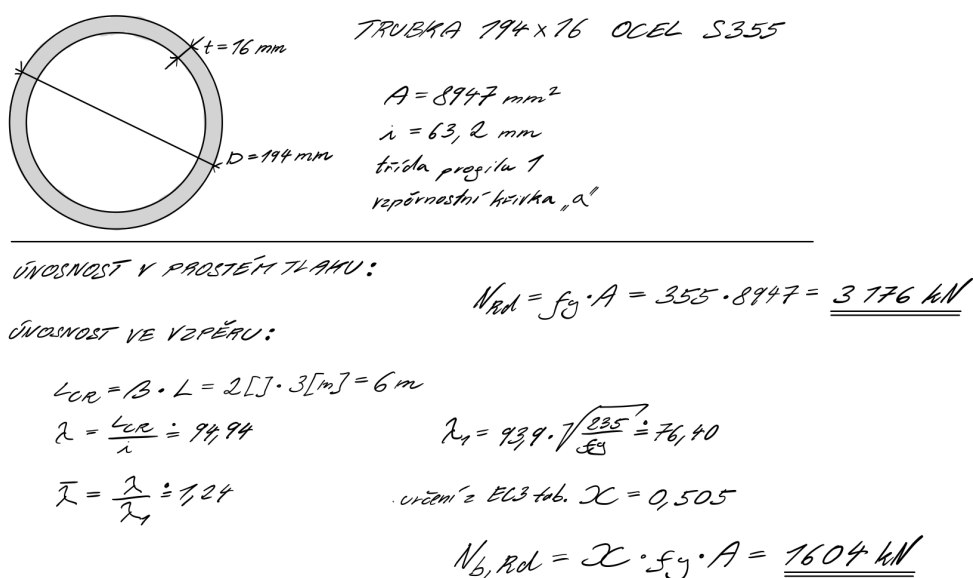 TRUBKA 194x16 OCEL S355
t = 16 mm
A = 8947 mm²
i = 63,2 mm
D = 194 mm
třída profilu 1
vzpěrnostní křivka „a"
ÚNOSNOST V PROSTÉM TLAKU:
N_Rd = fy · A = 355 · 8947 = 3 176 kN
ÚNOSNOST VE VZPĚRU:
L_CR = β · L = 2[] · 3[m] = 6 m
λ = L_CR / i ≐ 94,94
λ₁ = 93,9 · √(235 / fy) ≐ 76,40
λ̄ = λ / λ₁ ≐ 1,24
určení z EC3 tab. χ = 0,505
N_b,Rd = χ · fy · A = 1604 kN